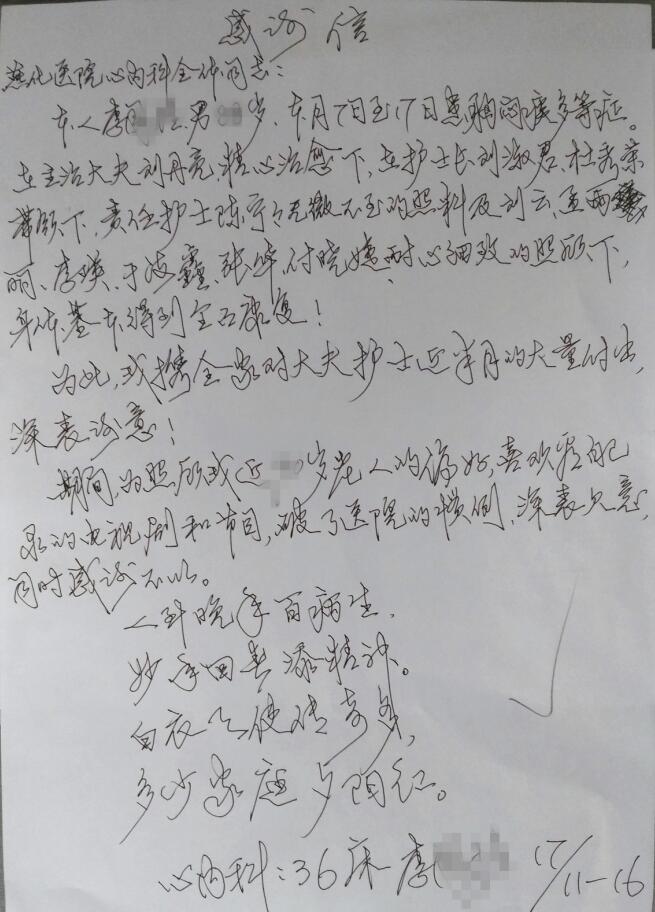 感谢信
燕化医院心内科全体同志：
本人李 男 岁，本月7日至17日患胸闷痰多等症。
在主治大夫刘丹亮，精心治愈下，在护士长刘淑君、杜秀荣
带领下，责任护士陈宁宁无微不至的照料及刘云、孟雨
丽、李瑛、于凌鑫、张华、付晓 耐心细致的照顾下，
身体基本得到全面康复！
为此，我携全家对大夫护士近半月的大量付出，
深表谢意！
期间，为照顾我近 岁老人的嗜好，喜欢看自己
录的电视剧和节目，破了医院的惯例，深表欠意，
同时感谢不以。
人到晚年百病生，
妙手回春添精神。
白衣天使传奇多，
多少家庭夕阳红。
心内科：36床李 17/11-16